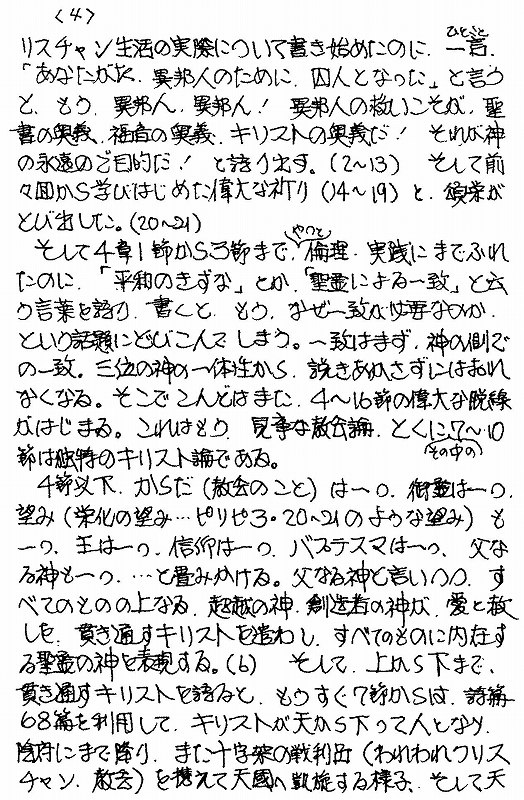 <4>
リスチャン生活の実際について書き始めたのに、一言、
ひとこと
「あなたがた、異邦人のために、囚人となった」と言う
と、もう、異邦人、異邦人！ 異邦人の救いこそが、聖
書の奥義、福音の奥義、キリストの奥義だ！ それが神
の永遠のご目的だ！ と語り出す。(2~13) そして前
々回から学びはじめた偉大な祈り(14~19)と、頌栄が
とび出した。(20~21)
そして4章1節から3節まで、やっと倫理・実践にまでふれ
たのに、「平和のきずな」とか、「聖霊による一致」と云
う言葉を語り、書くと、もう、なぜ一致が必要なのか、
という話題にとびこんでしまう。一致はまず、神の側で
の一致。三位の神の一体性から、説きあかさずにはおれ
なくなる。そこでこんどはまた、4~16節の偉大な脱線
がはじまる。これはもう、見事な教会論、とくに(その中の)7~10
節は独特のキリスト論である。
4節以下、からだ(教会のこと)は一つ、御霊は一つ、
望み(栄化の望み…ピリピ3・20~21のような望み)も
一つ、主は一つ、信仰は一つ、バプテスマは一つ、父な
る神も一つ、…と畳みかける。父なる神と言いつつ、す
べてのものの上なる、超越の神、創造者の神が、愛と赦
しを、貫き通すキリストを遣わし、すべてのものに内在す
る聖霊の神を表現する。(6) そして、上から下まで、
貫き通すキリストを語ると、もうすぐ7節からは、詩篇
68篇を利用して、キリストが天から下って人となり、
陰府にまで降り、また十字架の戦利品(われわれクリス
チャン、教会)を携えて天国へ凱旋する様子、そして天